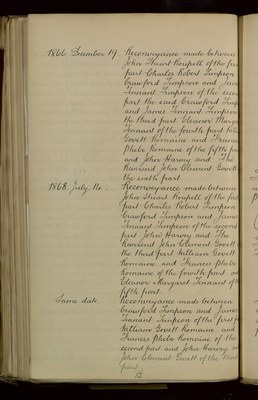 1866 December 19 Reconveyance made between
John Stuart Roupell of the first
part Charles Robert Timpson
Crawford Timpson and James
Tennant Timpson of the second
part the said Crawford Timp
and James Tennant Timpson
the third part Eleanor Marga
Tennant of the fourth part
Govett Romaine and Frances
Phebe Romaine of the fifth pa
and John Harvey and The
Reverend John Clement Govett
the sixth part
1868 July 16 Reconveyance made between
John Stuart Roupell of the first
part Charles Robert Timpson
Crawford Timpson and James
Tennant Timpson of the second
part John Harvey and The
Reverend John Clement Govett
the third part William Govett
Romaine and Frances Phebe
Romaine of the fourth part and
Eleanor Margaret Tennant of the
fifth part
Same date Reconveyance made between
Crawford Timpson and James
Tennant Timpson of the first p
William Govett Romaine and
Frances Phebe Romaine of the
second part and John Harvey
John Clement Govett of the third
part